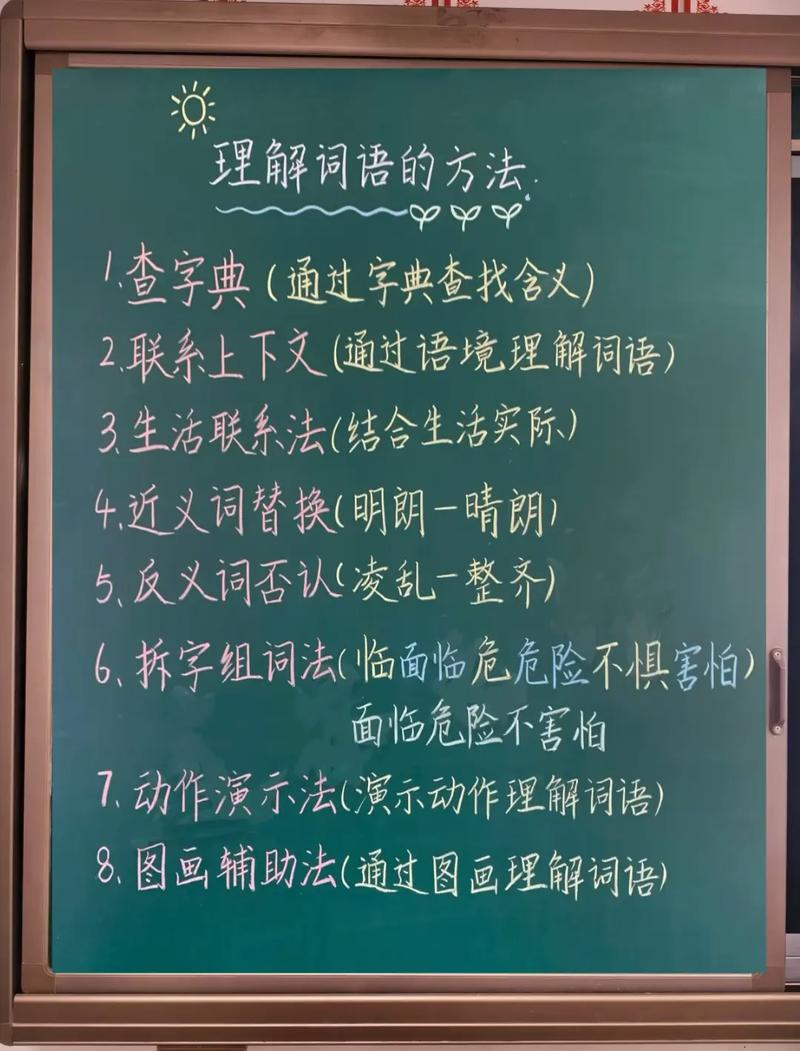 理解词语的方法.
1.查字典(通过字典查找含义)
2.联系上下文(通过语境理解词语)
3.生活联系法(结合生活实际)
4.近义词替换(明朗-晴朗)
5、反义词否认(凌乱-整齐)
6、拆字组词法(临面临危危险不惧害怕)
面临危险不害怕
7、动作演示法(演示动作理解词语)
8、图画辅助法(通过图画理解词语)